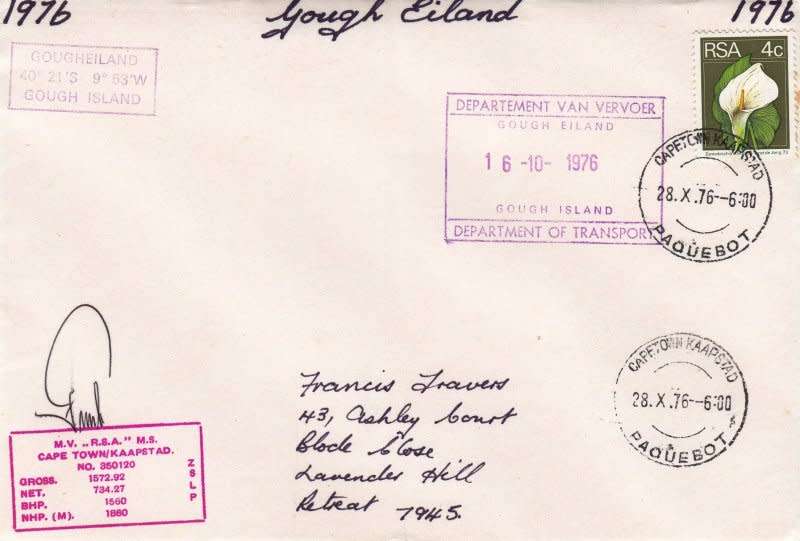 1976 Gough Eiland 1976
GOUGHEILAND
40° 21'S 9° 53'W
GOUGH ISLAND
RSA 4c
DEPARTEMENT VAN VERVOER
GOUGH EILAND
16 -10- 1976
GOUGH ISLAND
DEPARTMENT OF TRANSPORT
CAPETOWN KAAPSTAD
28.X.76--6:00
PAQUEBOT
CAPETOWN KAAPSTAD
28.X.76--6:00
PAQUEBOT
Francis Travers
43, Ashley Court
Blode Close
Lavender Hill
Retreat 7945.
M.V. „R.S.A." M.S.
CAPE TOWN/KAAPSTAD.
NO. 350120
GROSS. 1572.92
NET. 734.27
BHP. 1560
NHP. (M). 1860
ZSLP